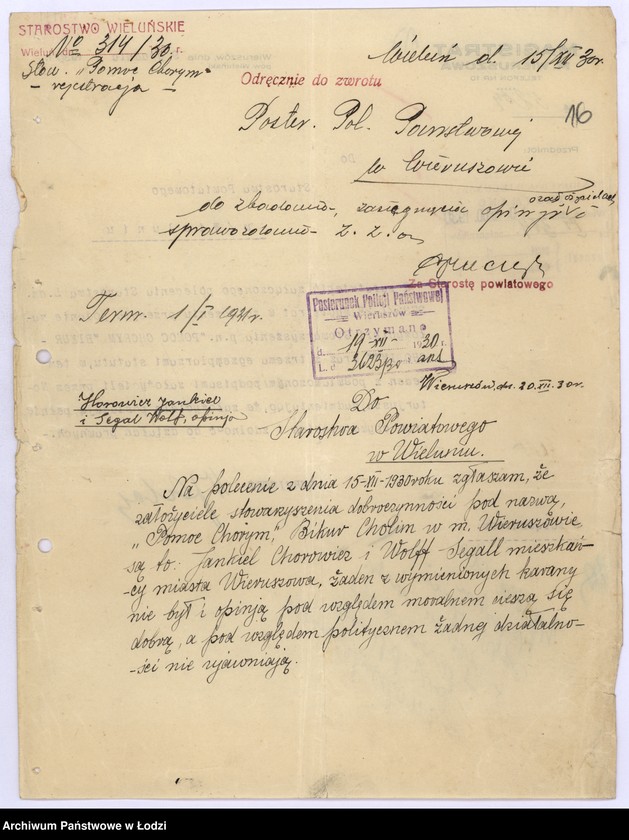 STAROSTWO WIELUŃSKIE
Wieluń dn. r.
Nº 314/30.
Stow. "Pomoc Chorym"
- rejestracja -
Wieluń d. 15/XII 30r.
Odręcznie do zwrotu
16
Poster. Pol. Państwowej
w Wieruszowie
do zbadania, zasięgnięcia opinji i
sprawozdania
Za Starostę powiatowego
Term. 1/I 1931r.
Posterunek Policji Państwowej
Wieruszów
Otrzymano
d. 19-XII- 1930r.
L. 3623/30 ant
Wieruszów, dn. 20.XII.30r.
Horowicz Jankiel
i Segal Wolf, opinja
Do
Starostwa Powiatowego
w Wieluniu.
Na polecenie z dnia 15-XII-1930 roku zgłaszam, że
założyciele stowarzyszenia dobroczynności pod nazwą,
"Pomoc Chorym", Bikur Cholim w m. Wieruszowie
są to: Jankiel Chorowicz i Wolff Segall mieszkań-
-cy miasta Wieruszowa, żaden z wymienionych karany
nie był i opinją pod względem moralnem cieszą się
dobrą, a pod względem politycznem żadnej działalno-
-ści nie ujawniają.
Archiwum Państwowe w Łodzi